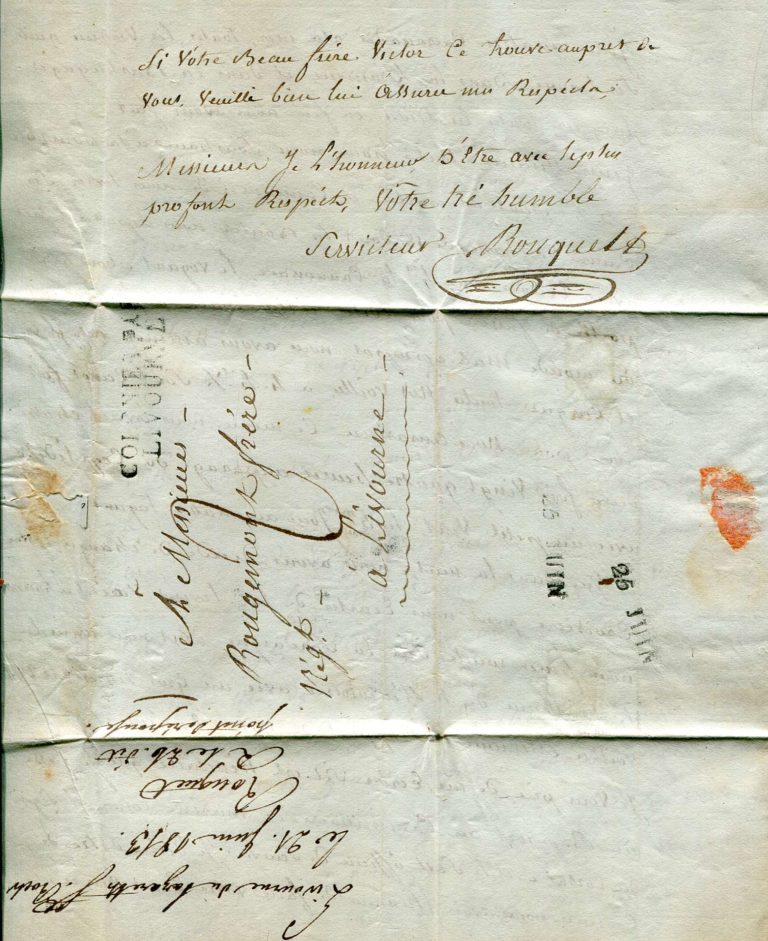 Si Votre Beau frère Victor Ce trouve aupret de
vous, veuillé bien lui Assurer mes Respécts,
Messieurs Je L'honneur D'Etre avec le plus
profont Respéct, Votre tré humble
Serviteur Rouquet
LIVOURNE
A Messieurs
Rougemont frére
Négts
a Livourne
25 JUIN
25 JUIN
Livourne du Lazareth St Roch
le 21. Juin 1813.
Rouquet
R le 26. dit
point de réponse.